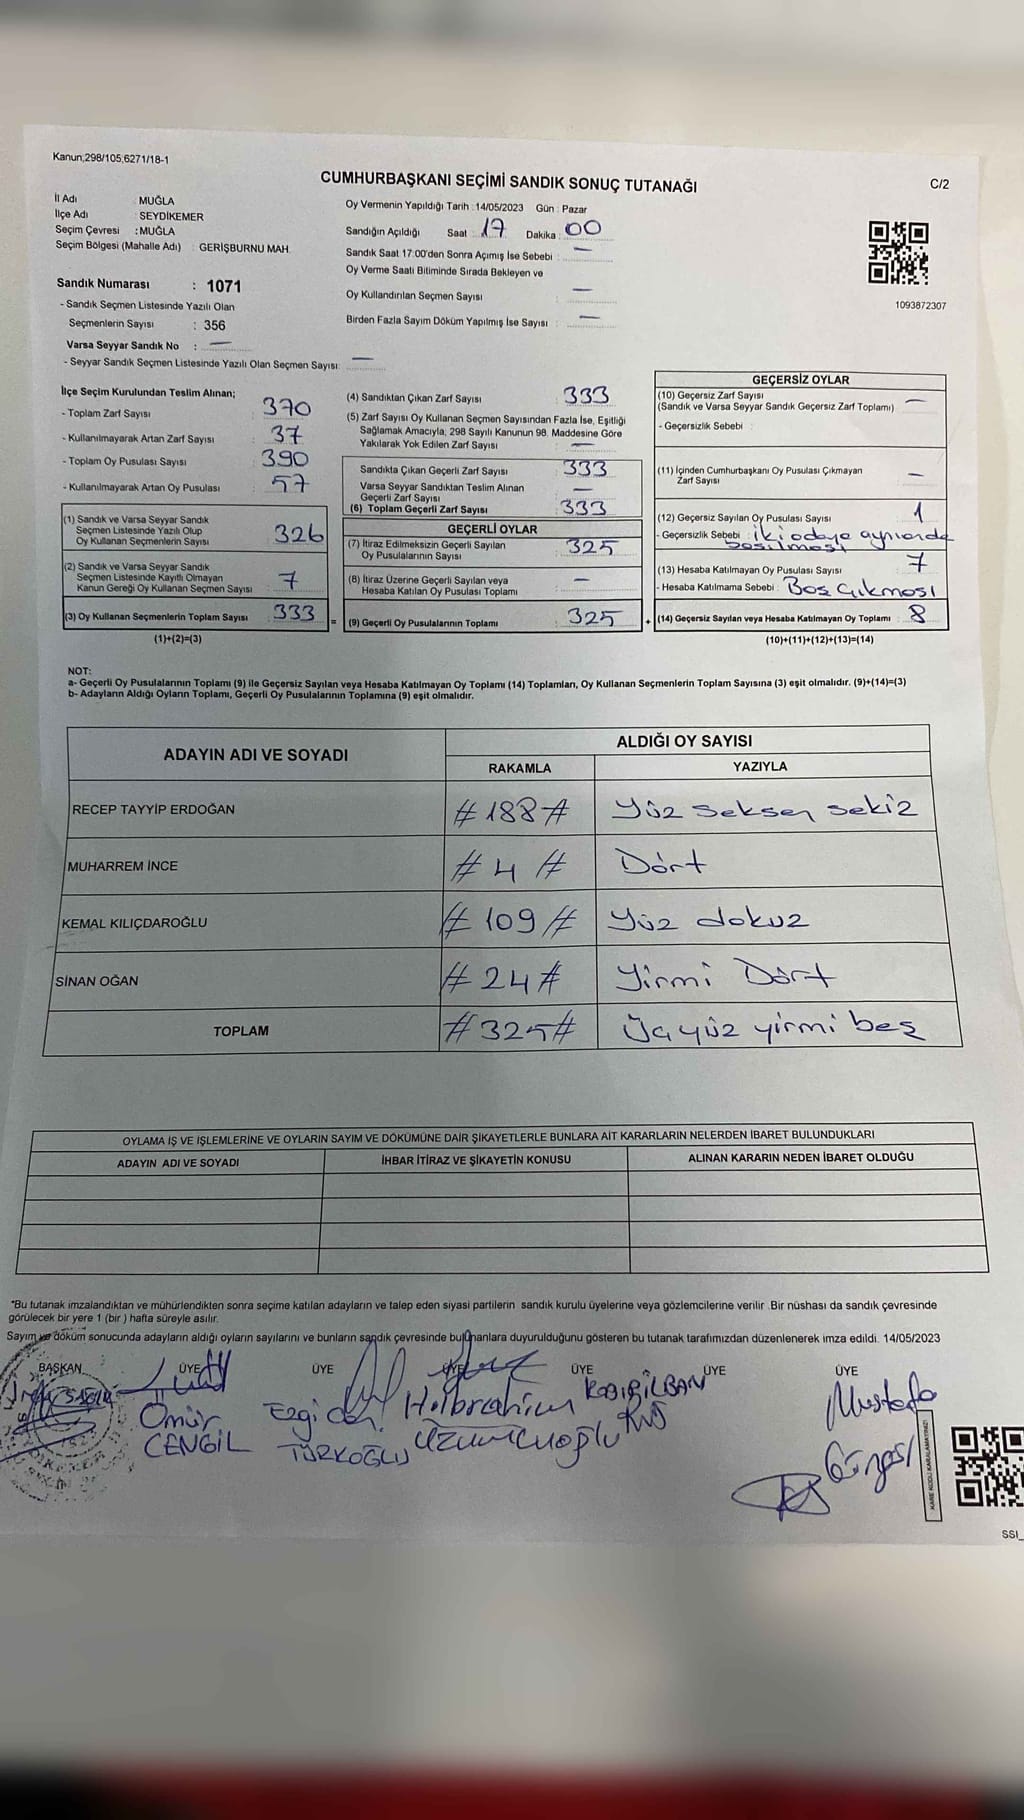 Kanun;298/105,6271/18-1
CUMHURBAŞKANI SEÇİMİ SANDIK SONUÇ TUTANAĞI
C/2
İl Adı : MUĞLA
İlçe Adı : SEYDİKEMER
Seçim Çevresi : MUĞLA
Seçim Bölgesi (Mahalle Adı) : GERİŞBURNU MAH.
Sandık Numarası : 1071
- Sandık Seçmen Listesinde Yazılı Olan
Seçmenlerin Sayısı : 356
Varsa Seyyar Sandık No : —
- Seyyar Sandık Seçmen Listesinde Yazılı Olan Seçmen Sayısı: —
Oy Vermenin Yapıldığı Tarih : 14/05/2023 Gün : Pazar
Sandığın Açıldığı Saat : 17 Dakika : 00
Sandık Saat 17:00'den Sonra Açımış İse Sebebi : —
Oy Verme Saati Bitiminde Sırada Bekleyen ve
Oy Kullandırılan Seçmen Sayısı : —
Birden Fazla Sayım Döküm Yapılmış İse Sayısı : —
1093872307
İlçe Seçim Kurulundan Teslim Alınan;
- Toplam Zarf Sayısı : 370
- Kullanılmayarak Artan Zarf Sayısı : 37
- Toplam Oy Pusulası Sayısı : 390
- Kullanılmayarak Artan Oy Pusulası : 57
(1) Sandık ve Varsa Seyyar Sandık
Seçmen Listesinde Yazılı Olup
Oy Kullanan Seçmenlerin Sayısı : 326
(2) Sandık ve Varsa Seyyar Sandık
Seçmen Listesinde Kayıtlı Olmayan
Kanun Gereği Oy Kullanan Seçmen Sayısı : 7
(3) Oy Kullanan Seçmenlerin Toplam Sayısı : 333
(1)+(2)=(3)
(4) Sandıktan Çıkan Zarf Sayısı : 333
(5) Zarf Sayısı Oy Kullanan Seçmen Sayısından Fazla İse, Eşitliği
Sağlamak Amacıyla; 298 Sayılı Kanunun 98. Maddesine Göre
Yakılarak Yok Edilen Zarf Sayısı : —
Sandıkta Çıkan Geçerli Zarf Sayısı : 333
Varsa Seyyar Sandıktan Teslim Alınan
Geçerli Zarf Sayısı : —
(6) Toplam Geçerli Zarf Sayısı : 333
GEÇERLİ OYLAR
(7) İtiraz Edilmeksizin Geçerli Sayılan
Oy Pusulalarının Sayısı : 325
(8) İtiraz Üzerine Geçerli Sayılan veya
Hesaba Katılan Oy Pusulası Toplamı : —
= (9) Geçerli Oy Pusulalarının Toplamı : 325
GEÇERSİZ OYLAR
(10) Geçersiz Zarf Sayısı : —
(Sandık ve Varsa Seyyar Sandık Geçersiz Zarf Toplamı)
- Geçersizlik Sebebi :
(11) İçinden Cumhurbaşkanı Oy Pusulası Çıkmayan
Zarf Sayısı : —
(12) Geçersiz Sayılan Oy Pusulası Sayısı : 1
- Geçersizlik Sebebi : iki adaya ayrıarda
basılması
(13) Hesaba Katılmayan Oy Pusulası Sayısı : 7
- Hesaba Katılmama Sebebi : Boş Çıkması
+ (14) Geçersiz Sayılan veya Hesaba Katılmayan Oy Toplamı : 8
(10)+(11)+(12)+(13)=(14)
NOT:
a- Geçerli Oy Pusulalarının Toplamı (9) ile Geçersiz Sayılan veya Hesaba Katılmayan Oy Toplamı (14) Toplamları, Oy Kullanan Seçmenlerin Toplam Sayısına (3) eşit olmalıdır. (9)+(14)=(3)
b- Adayların Aldığı Oyların Toplamı, Geçerli Oy Pusulalarının Toplamına (9) eşit olmalıdır.
ADAYIN ADI VE SOYADI
ALDIĞI OY SAYISI
RAKAMLA YAZIYLA
RECEP TAYYİP ERDOĞAN #188# Yüz seksen sekiz
MUHARREM İNCE #4# Dört
KEMAL KILIÇDAROĞLU #109# Yüz dokuz
SİNAN OĞAN #24# Yirmi Dört
TOPLAM #325# Üçyüz yirmi beş
OYLAMA İŞ VE İŞLEMLERİNE VE OYLARIN SAYIM VE DÖKÜMÜNE DAİR ŞİKAYETLERLE BUNLARA AİT KARARLARIN NELERDEN İBARET BULUNDUKLARI
ADAYIN ADI VE SOYADI İHBAR İTİRAZ VE ŞİKAYETİN KONUSU ALINAN KARARIN NEDEN İBARET OLDUĞU
*Bu tutanak imzalandıktan ve mühürlendikten sonra seçime katılan adayların ve talep eden siyasi partilerin sandık kurulu üyelerine veya gözlemcilerine verilir .Bir nüshası da sandık çevresinde
görülecek bir yere 1 (bir ) hafta süreyle asılır.
Sayım ve döküm sonucunda adayların aldığı oyların sayılarını ve bunların sandık çevresinde bulunanlara duyurulduğunu gösteren bu tutanak tarafımızdan düzenlenerek imza edildi. 14/05/2023
BAŞKAN ÜYE ÜYE ÜYE ÜYE ÜYE ÜYE
Ömür
CENGİL
Ezgi
TÜRKOĞLU
Halibrahim
Üzümcüoğlu
Mustafa
KARE KODU KARALAMAYINIZ!
SSI_